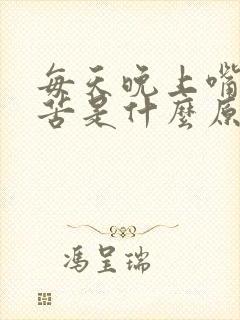 每天晚上嘴
苦是什麼原
馮呈瑞